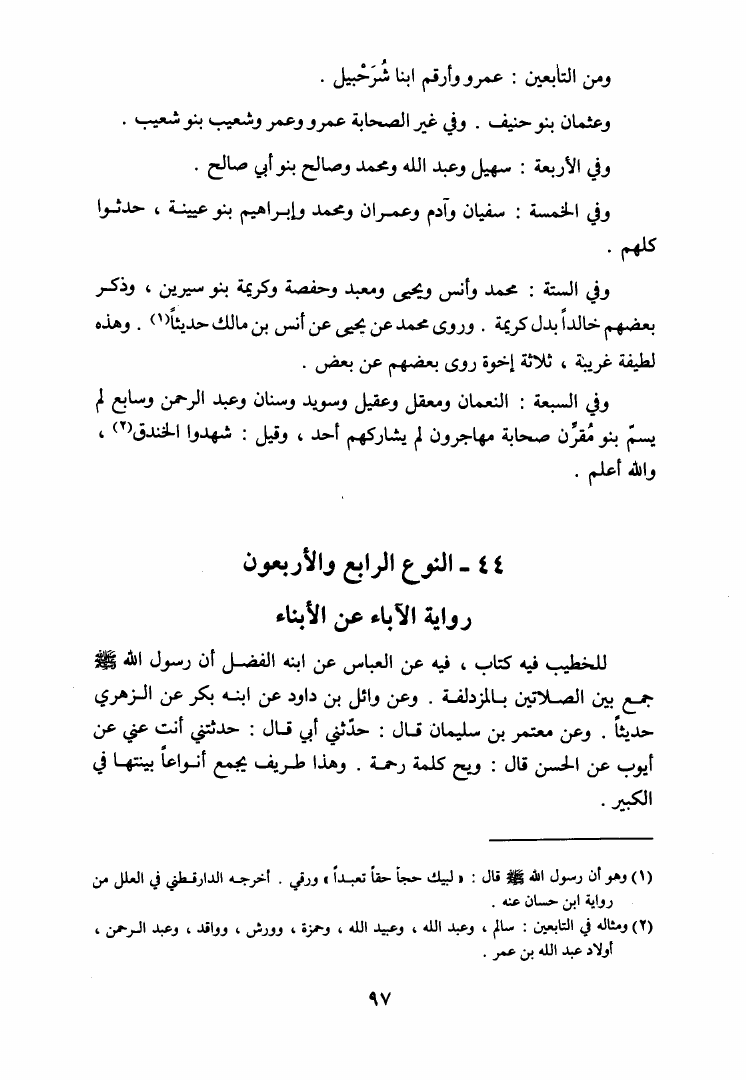 ومن التابعين : عمرو وأرقم ابنا شُرَحْبيل .
وعثمان بنو حنيف . وفي غير الصحابة عمرو وعمر وشعيب بنو شعيب .
وفي الأربعة : سهيل وعبد الله ومحمد وصالح بنو أبي صالح .
وفي الخمسة : سفيان وآدم وعمـران ومحمد وإبـراهيم بنو عيينـة ، حدثـوا
كلهم .
وفي الستة : محمد وأنس ويحيى ومعبد وحفصة وكريمة بنو سيرين ، وذكـر
بعضهم خالداً بدل كريمة . وروى محمد عن يحيى عن أنس بن مالك حديثاً(١) . وهذه
لطيفة غريبة ، ثلاثة إخوة روى بعضهم عن بعض .
وفي السبعة : النعمان ومعقل وعقيل وسويد وسنان وعبد الرحمن وسابع لم
يسمّ بنو مُقرِّن صحابة مهاجرون لم يشاركهم أحد ، وقيل : شهدوا الخندق(٢) ،
والله أعلم .
٤٤ ـ النوع الرابع والأربعون
رواية الآباء عن الأبناء
للخطيب فيه كتاب ، فيه عن العباس عن ابنه الفضـل أن رسول الله ﷺ
جمـع بين الصـلاتين بـالمزدلفـة . وعن وائل بن داود عن ابنـه بكر عن الـزهري
حديثاً . وعن معتمر بن سليمان قـال : حدّثني أبي قـال : حدثتني أنت عني عن
أيوب عن الحسن قال : ويح كلمة رحمـة . وهذا طـريف يجمع أنـواعاً بينتهـا في
الكبير .
(١) وهو أن رسول الله ﷺ قال : « لبيك حجاً حقاً تعبـداً » ورقي . أخرجـه الدارقـطني في العلل من
رواية ابن حسان عنه .
(٢) ومثاله في التابعين : سالم ، وعبد الله ، وعبيد الله ، وحمزة ، وورش ، وواقد ، وعبد الـرحمن ،
أولاد عبد الله بن عمر .
٩٧